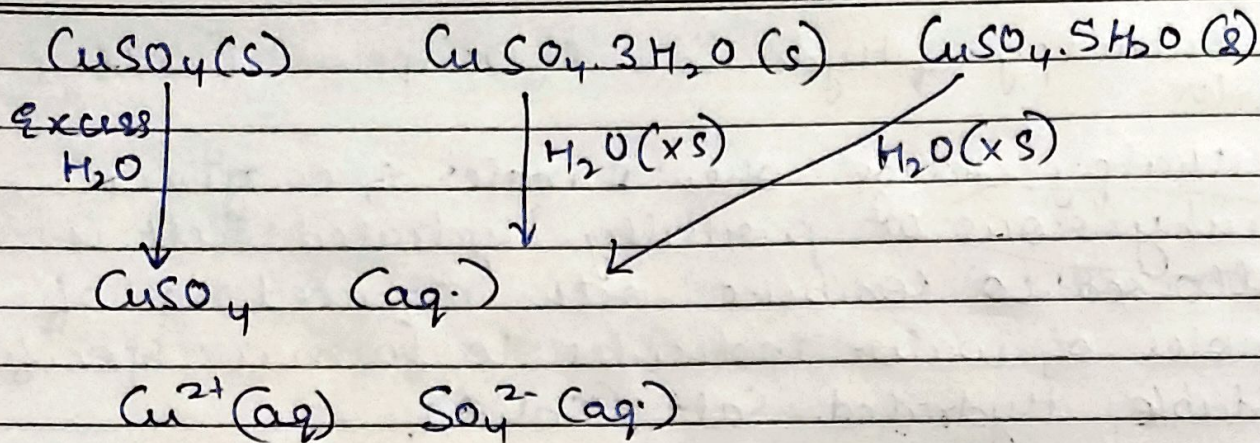 CuSO₄(s) CuSO₄.3H₂O (s) CuSO₄.5H₂O (s)
Excess H₂O(xs) H₂O(xs)
H₂O
CuSO₄ (aq.)
Cu²⁺(aq) SO₄²⁻ (aq.)